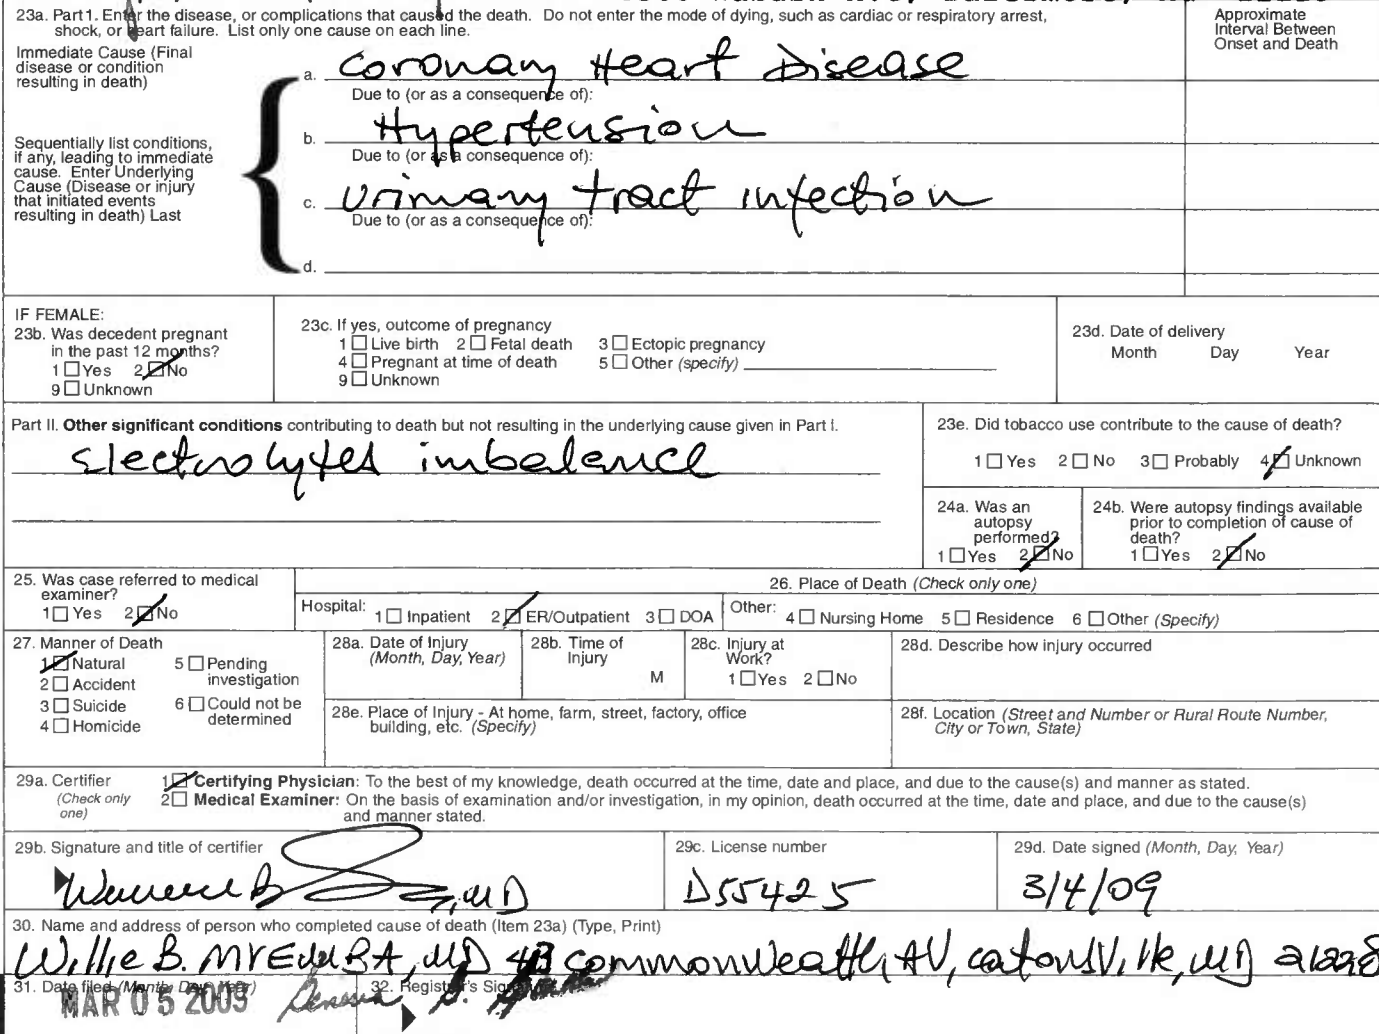 23a. Part1. Enter the disease, or complications that caused the death. Do not enter the mode of dying, such as cardiac or respiratory arrest,
shock, or heart failure. List only one cause on each line.
Approximate
Interval Between
Onset and Death
Immediate Cause (Final
disease or condition
resulting in death)
a. Coronary Heart Disease
Due to (or as a consequence of):
Sequentially list conditions,
if any, leading to immediate
cause. Enter Underlying
Cause (Disease or injury
that initiated events
resulting in death) Last
b. Hypertension
Due to (or as a consequence of):
c. Urinary tract infection
Due to (or as a consequence of):
d.
IF FEMALE:
23b. Was decedent pregnant
in the past 12 months?
1 Yes 2 No
9 Unknown
23c. If yes, outcome of pregnancy
1 Live birth 2 Fetal death 3 Ectopic pregnancy
4 Pregnant at time of death 5 Other (specify)
9 Unknown
23d. Date of delivery
Month Day Year
Part II. Other significant conditions contributing to death but not resulting in the underlying cause given in Part I.
Electrolytes imbalance
23e. Did tobacco use contribute to the cause of death?
1 Yes 2 No 3 Probably 4 Unknown
24a. Was an
autopsy
performed?
1 Yes 2 No
24b. Were autopsy findings available
prior to completion of cause of
death?
1 Yes 2 No
25. Was case referred to medical
examiner?
1 Yes 2 No
26. Place of Death (Check only one)
Hospital: 1 Inpatient 2 ER/Outpatient 3 DOA Other: 4 Nursing Home 5 Residence 6 Other (Specify)
27. Manner of Death
1 Natural 5 Pending
investigation
2 Accident
3 Suicide 6 Could not be
determined
4 Homicide
28a. Date of Injury
(Month, Day, Year)
28b. Time of
Injury
M
28c. Injury at
Work?
1 Yes 2 No
28d. Describe how injury occurred
28e. Place of Injury - At home, farm, street, factory, office
building, etc. (Specify)
28f. Location (Street and Number or Rural Route Number,
City or Town, State)
29a. Certifier
(Check only
one)
1 Certifying Physician: To the best of my knowledge, death occurred at the time, date and place, and due to the cause(s) and manner as stated.
2 Medical Examiner: On the basis of examination and/or investigation, in my opinion, death occurred at the time, date and place, and due to the cause(s)
and manner stated.
29b. Signature and title of certifier
, MD
29c. License number
D55425
29d. Date signed (Month, Day, Year)
3/4/09
30. Name and address of person who completed cause of death (Item 23a) (Type, Print)
Willie B. , MD commonwealth AV, catonsville, MD 21228
31. Date filed (Month, Day, Year)
MAR 05 2009
32. Registrar's Signature